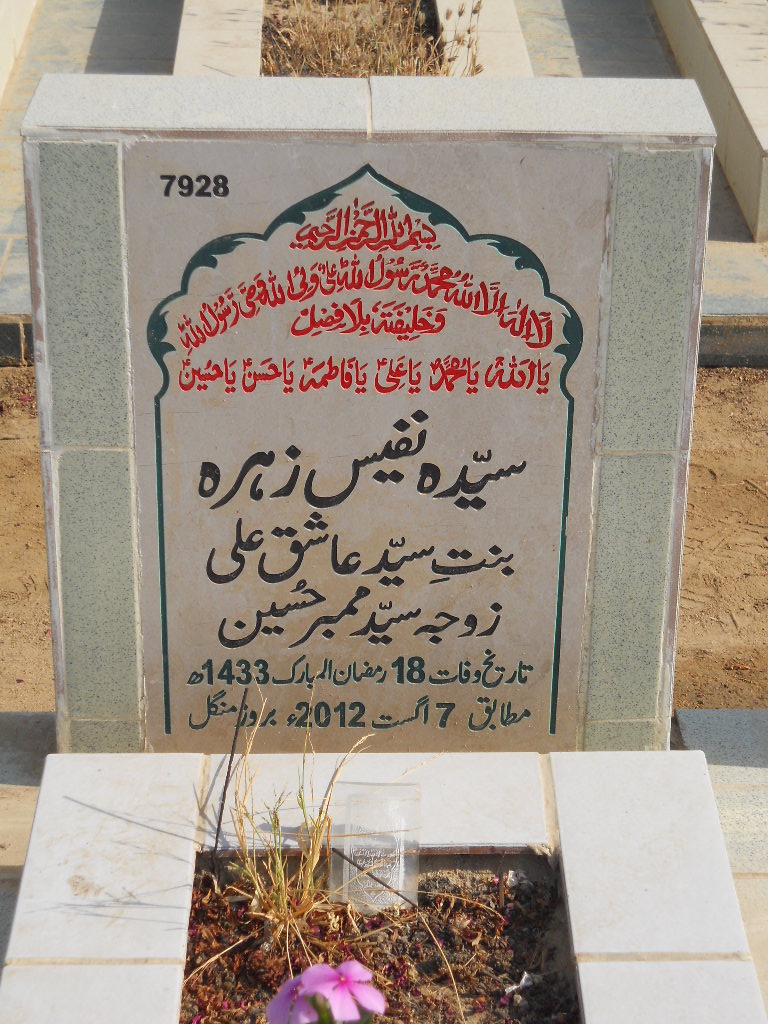 7928
بسم اللہ الرحمن الرحیم
لَا اِلٰہَ اِلَّا اللہُ مُحَمَّدٌ رَّسُوْلُ اللہِ عَلِیٌّ وَلِیُّ اللہِ وَصِیُّ رَسُوْلِ اللہِ
وَخَلِیْفَتُہٗ بِلَا فَصْلٍ
یااللہؐ یامحمدؐ یاعلیؑ یافاطمہؑ یاحسنؑ یاحسینؑ
سیّدہ نفیس زہرہ
بنتِ سیّد عاشق علی
زوجہ سیّد ممبر حُسین
تاریخ وفات 18 رمضان المبارک 1433ھ
مطابق 7 اگست 2012ء بروز منگل